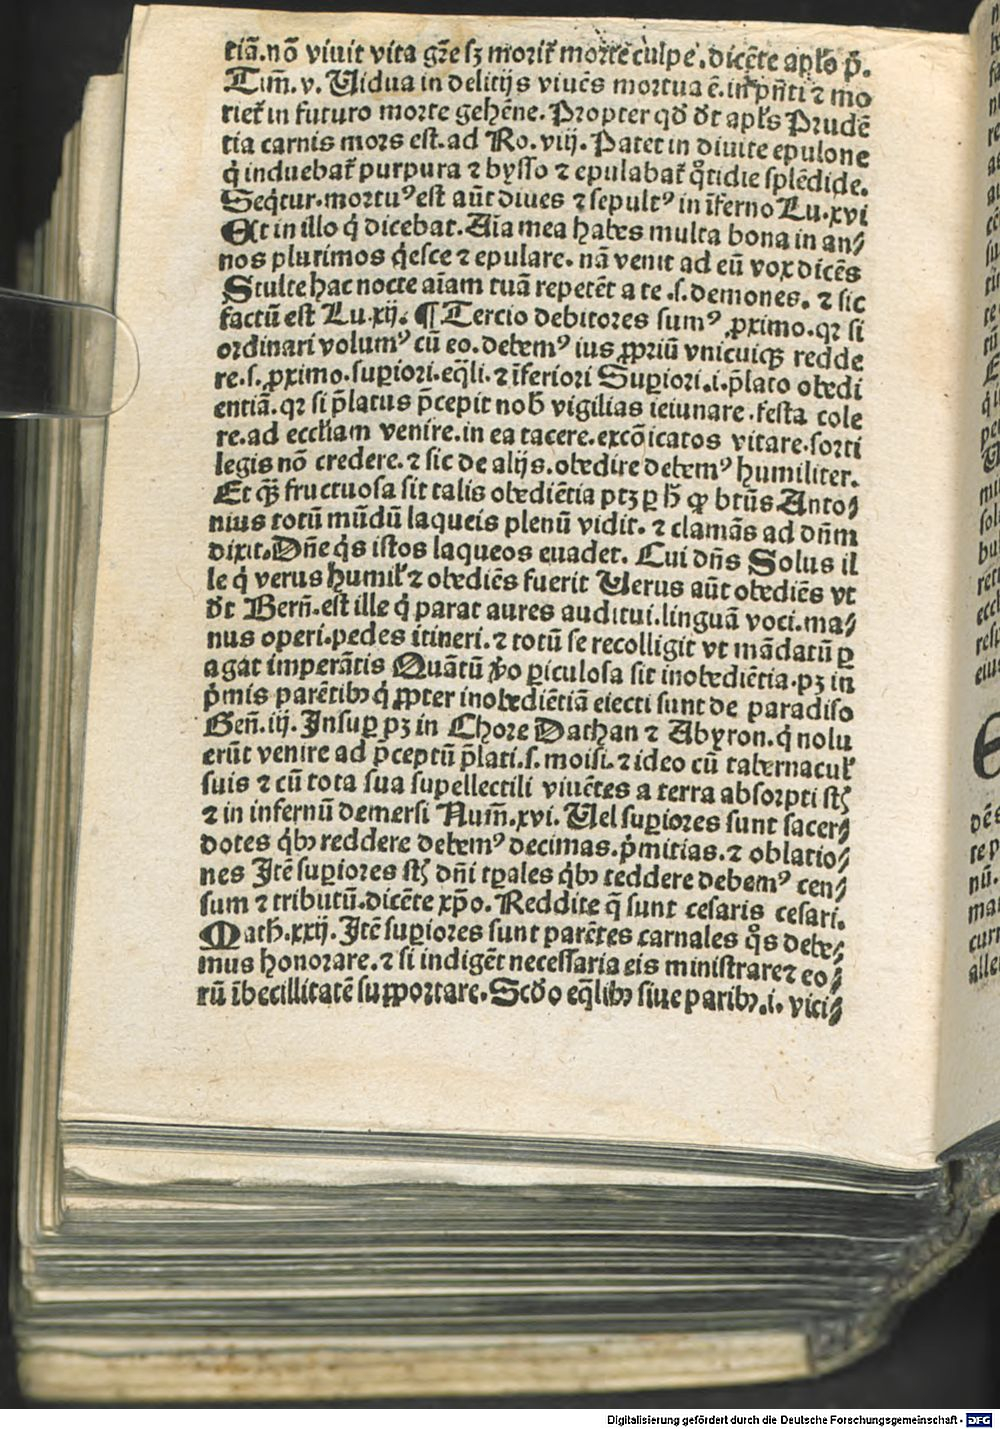 tiā.nō viuit vita gr̄e sꝫ morit᷑ morte culpe.dicēte apl̄o p̄.
Tim̄.v. Uidua in delitijs viuēs mortua ē.in pn̄ti ⁊ mo
riet᷑ in futuro morte gehēne. Propter qd̄ dr̄ apl̄s Prudē
tia carnis mors est.ad Ro.viij. Patet in diuite epulone
q̇ induebat᷑ purpura ⁊ bysso ⁊ epulabat᷑ q̊tidie splēdide.
Seq̇tur.mortuꝰ est aūt diues ⁊ sepultꝰ in īferno Lu.xvi
Et in illo q̇ dicebat.Aīa mea habes multa bona in an⸗
nos plurimos q̇esce ⁊ epulare. nā venit ad eū vox dicēs
Stulte hac nocte aīam tuā repetēt a te .s.demones. ⁊ sic
factū est Lu.xij. ¶ Tercio debitores sumꝰ ꝓximo.qꝛ si
ordinari volumꝰ cū eo.debemꝰ ius ꝓpriū vnicuiqꝫ redde
re.s.ꝓximo.suꝑiori.eq̄li.⁊ īferiori Suꝑiori.i.p̄lato obedi
entiā.qꝛ si p̄latus p̄cepit nob̄ vigilias ieiunare.festa cole
re.ad eccl̄iam venire.in ea tacere.excōicatos vitare.sorti
legis nō credere.⁊ sic de alijs.obedire debemꝰ humiliter.
Et qꝫ̄ fructuosa sit talis obediētia ptꝫ ꝑ h̄ ꝙ btūs Anto⸗
nius totū mūdū laqueis plenū vidit. ⁊ clamās ad dn̄m
dixit.Dn̄e q̇s istos laqueos euadet. Cui dn̄s Solus il
le q̇ verus humil̄ ⁊ obediēs fuerit Uerus aūt obediēs vt
dr̄ Bern̄.est ille q̇ parat aures auditui.linguā voci.ma⸗
nus operi.pedes itineri.⁊ totū se recolligit vt mādatū ꝑ
agat imperātis Quātū v̊o ꝑiculosa sit inobediētia.pꝫ in
ṗmis parētibꝫ q̇ ꝓpter inobediētiā eiecti sunt de paradiso
Gen̄.iij. Insuꝑ pꝫ in Chore Dathan ⁊ Abyron.q̇ nolu
erūt venire ad p̄ceptū p̄lati.s.moisi.⁊ ideo cū tabernacul̄
suis ⁊ cū tota sua supellectili viuētes a terra absorpti st̄
⁊ in infernū demersi Num̄.xvi. Uel suꝑiores sunt sacer⸗
dotes q̇bꝫ reddere debemꝰ decimas.ṗmitias.⁊ oblatio⸗
nes Itē suꝑiores st̄ dn̄i tꝑales q̇bꝫ reddere debemꝰ cen⸗
sum ⁊ tributū.dicēte xp̄o. Reddite q̄ sunt cesaris cesari.
Math̄.xxij. Itē suꝑiores sunt parētes carnales q̊s debe⸗
mus honorare.⁊ si indigēt necessaria eis ministrare ⁊ eo⸗
rū ībecillitatē suꝓportare. Scd̄o eq̄libꝫ siue paribꝫ.i. vici⸗
Digitalisierung gefördert durch die Deutsche Forschungsgemeinschaft - DFG